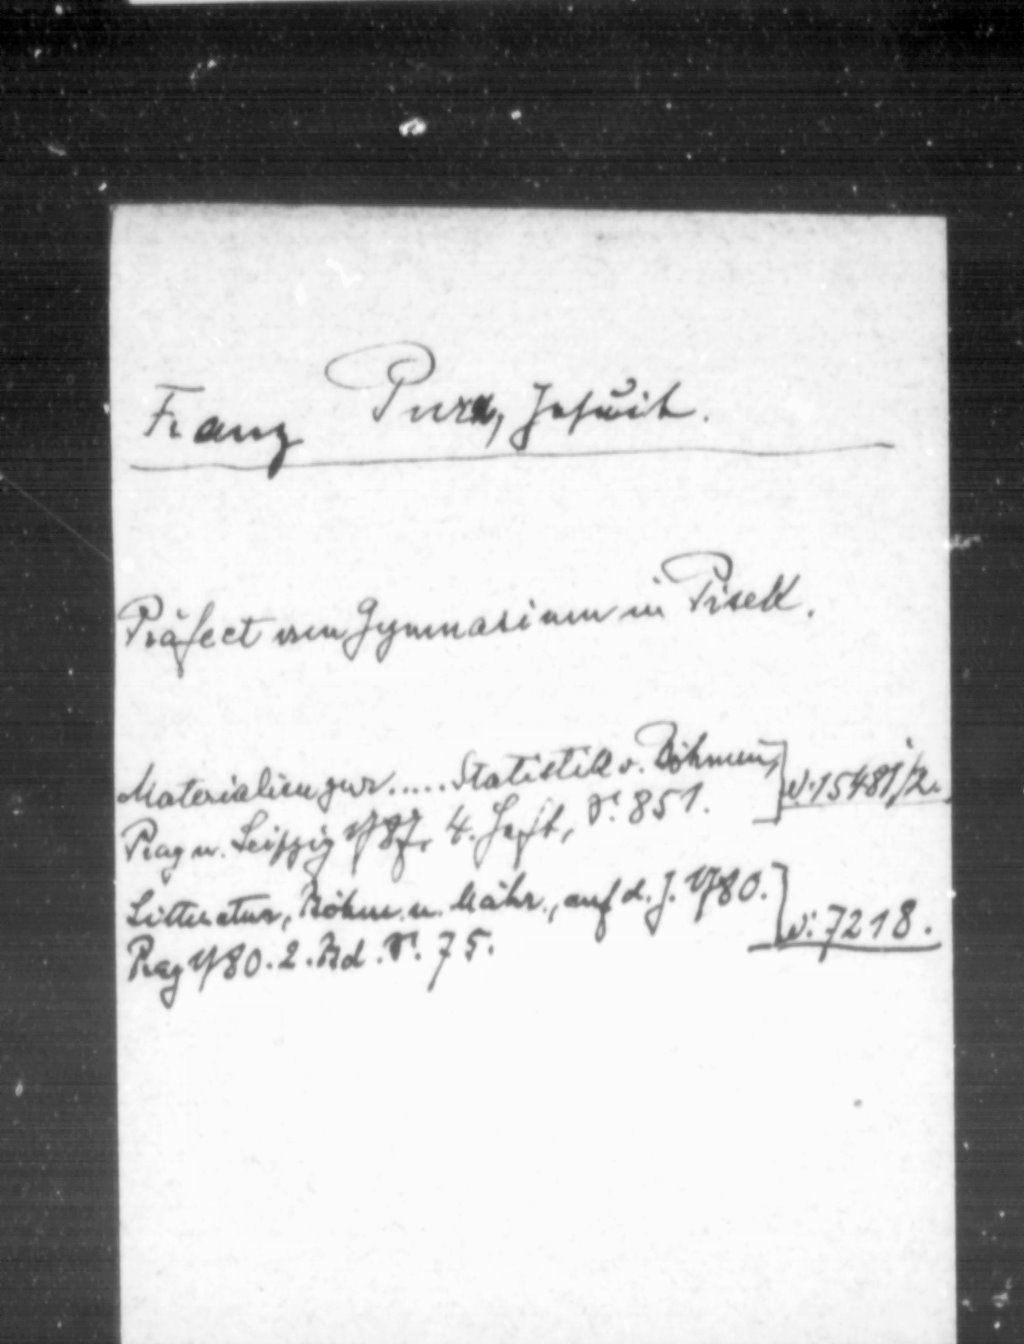 Franz Pura, Jesuit.
Präfect vom Gymnasium in Pisek.
Materialien zur ..... Statistik v. Böhmen,
Prag u. Leipzig 1787. 4. Heft, S. 851. 15481/2.
Litteratur, Böhm. u. Mähr., auf d. J. 1780.
Prag 1780. 2. Bd. S. 75. 7218.